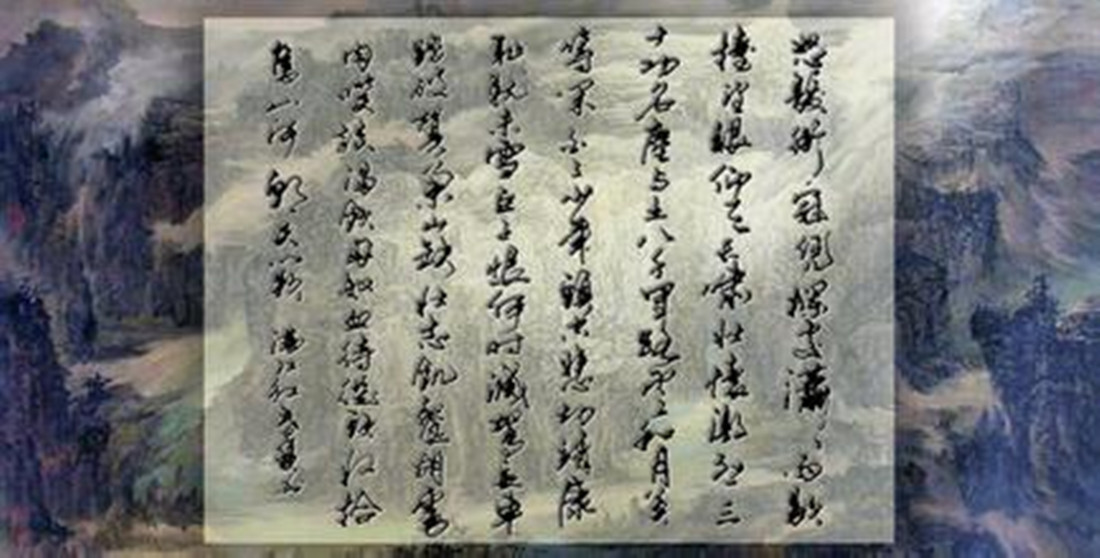 怒髮衝冠憑欄處瀟々雨歇
擡望眼仰天長嘯壯懷激烈三
十功名塵与土八千里路雲和月莫
等閑白了少年頭空悲切靖康
恥猶未雪臣子恨何時滅駕長車
踏破賀蘭山缺壯志飢餐胡虜
肉笑談渴飲匈奴血待從頭收拾
舊山河朝天闕 滿江紅